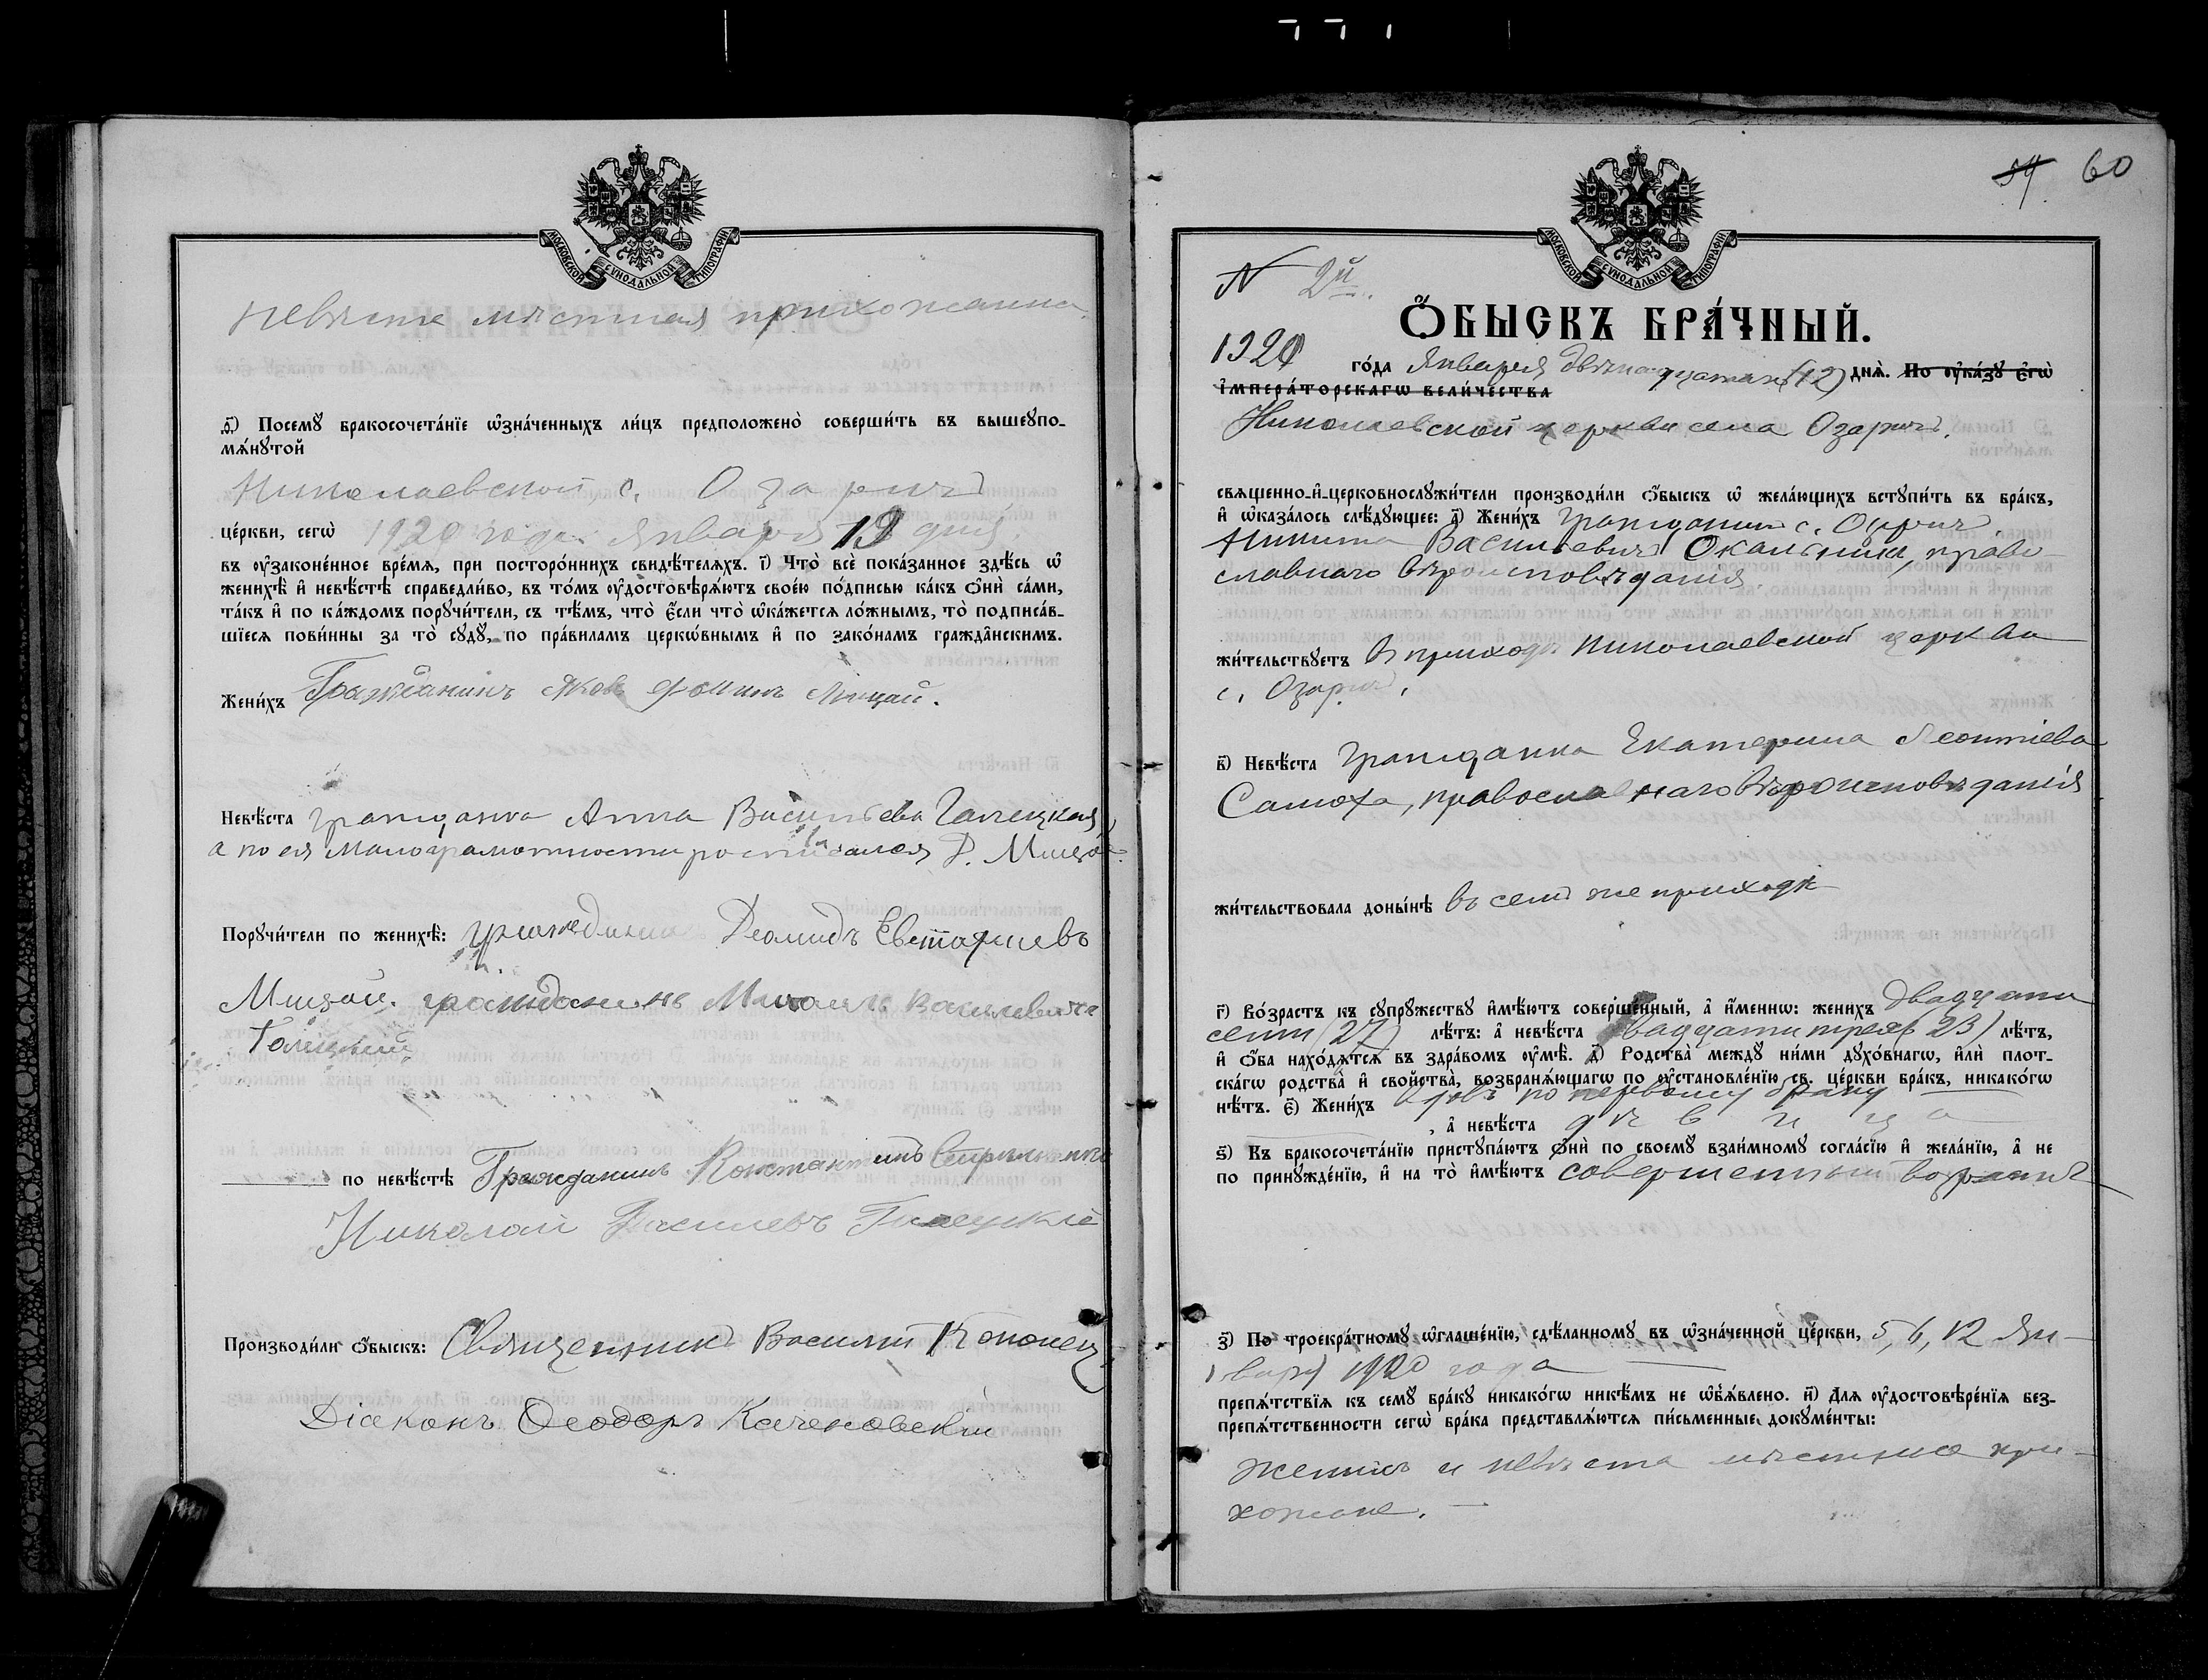 МОСКОВСКОЙ СѴНОДАЛЬНОЙ ТИПОГРАФІИ
невѣста мѣстная прихожанка.
ѳ҃) Посемꙋ̀ бракосочета́нїе ѡ҆зна́ченныхъ ли́цъ предположено̀ соверши́ть въ вышеꙋпо-
мѧ́нꙋтой
Николаевской с. Озаричъ
це́ркви, сегѡ̀ 1920 года Января 19 дня.
въ ᲂу҆законе́нное вре́мѧ, при посторо́ннихъ свидѣ́телѧхъ. і҃) Что̀ всѐ пока́занное здѣ́сь ѡ҆
женихѣ̀ и҆ невѣ́стѣ справедли́во, въ то́мъ ᲂу҆достовѣрѧ́ютъ свое́ю по́дписью ка́къ ѻ҆нѝ са́ми,
та́къ и҆ по ка́ждомъ порꙋчи́тели, съ тѣ́мъ, что̀ є҆́сли что̀ ѡ҆ка́жетсѧ ло́жнымъ, то̀ подписа́в-
шїесѧ пови́нны за то̀ сꙋдꙋ̀, по пра́виламъ церкѡ́внымъ и҆ по зако́намъ гражда̂нскимъ.
Жени́хъ Гражданинъ Яковъ Фоминъ Мицай.
Невѣ́ста гражданка Анна Васильева Галецкая,
а по ея малограмотности росписался Д. Мицай.
Порꙋчи́тели по женихѣ̀: гражданинъ Деомидъ Евстафиевъ
Мицай. гражданинъ Михаилъ Василевичъ
Галицкий.
по невѣ́стѣ Гражданинъ Константинъ
Николай Василевъ Галецкіе
Производи́ли ѻ҆́быскъ: Священникъ Василій Кононец
Діаконъ Ѳеодоръ Каченовскій
59 60
МОСКОВСКОЙ СѴНОДАЛЬНОЙ ТИПОГРАФІИ
N 2й.
Ѻ҆́БЫСКЪ БРА́ЧНЫЙ.
1920 го́да Января двѣнадцатаго (12) днѧ̀. По ᲂу҆ка́зꙋ є҆гѡ̀
і҆мпера́торскагѡ вели́чества
Николаевской церкви села Озаричъ.
свѧщенно-и҆-церковнослꙋжи́тели производи́ли ѻ҆́быскъ ѡ҆ жела́ющихъ встꙋпи́ть въ бра́къ,
и҆ ѡ҆каза́лось слѣ́дꙋющее: а҃) Жени́хъ гражданинъ с. Озаричъ
Никита Васильевичъ, право-
славнаго вѣроисповѣданія.
жи́тельствꙋетъ въ приходѣ Николаевской церкви
с. Озаричъ.
в҃) Невѣ́ста Гражданка Екатерина Леонтіева
Самоха, православнаго вѣроисповѣданія
жи́тельствовала доны́нѣ въ семъ же приходѣ
г҃) Во́зрастъ къ сꙋпрꙋ́жествꙋ и҆мѣ́ютъ соверше́нный, а҆ и҆́меннѡ: жени́хъ двадцати
семи (27) лѣ́тъ: а҆ невѣ́ста двадцати трехъ (23) лѣ́тъ,
и҆ ѻ҆́ба нахо́дѧтсѧ въ здра́вомъ ᲂу҆мѣ̀. д҃) Родства̀ междꙋ̀ ни́ми дꙋхо́внагѡ, и҆лѝ плот-
ска́гѡ родства̀ и҆ сво́йства̀, возбранѧ́ющагѡ по ᲂу҆становле́нїю св. це́ркви бра́къ, никако́гѡ
нѣ́тъ. є҃) Жени́хъ вдовъ по первому браку
, а҆ невѣ́ста дѣвица
ѕ҃) Къ бракосочета́нїю пристꙋпа́ютъ ѻ҆нѝ по своемꙋ̀ взаи́мномꙋ согла́сїю и҆ жела́нїю, а҆ не
по принꙋжде́нїю, и҆ на то̀ и҆мѣ́ютъ совершенный возрастъ
з҃) По троекра́тномꙋ ѡ҆глаше́нїю, сдѣ́ланномꙋ въ ѡ҆зна́ченной це́ркви, 5, 6, 12 Ян-
варя 1920 года
препѧ́тствїѧ къ семꙋ̀ бра́кꙋ никако́гѡ никѣ́мъ не ѡ҆б̾ѧ́влено. и҃) Длѧ ᲂу҆достовѣре́нїѧ без-
препѧ́тственности сегѡ̀ бра́ка представлѧ́ютсѧ пи́сьменные докꙋме́нты:
Женихъ и невѣста мѣстные при-
хожане.